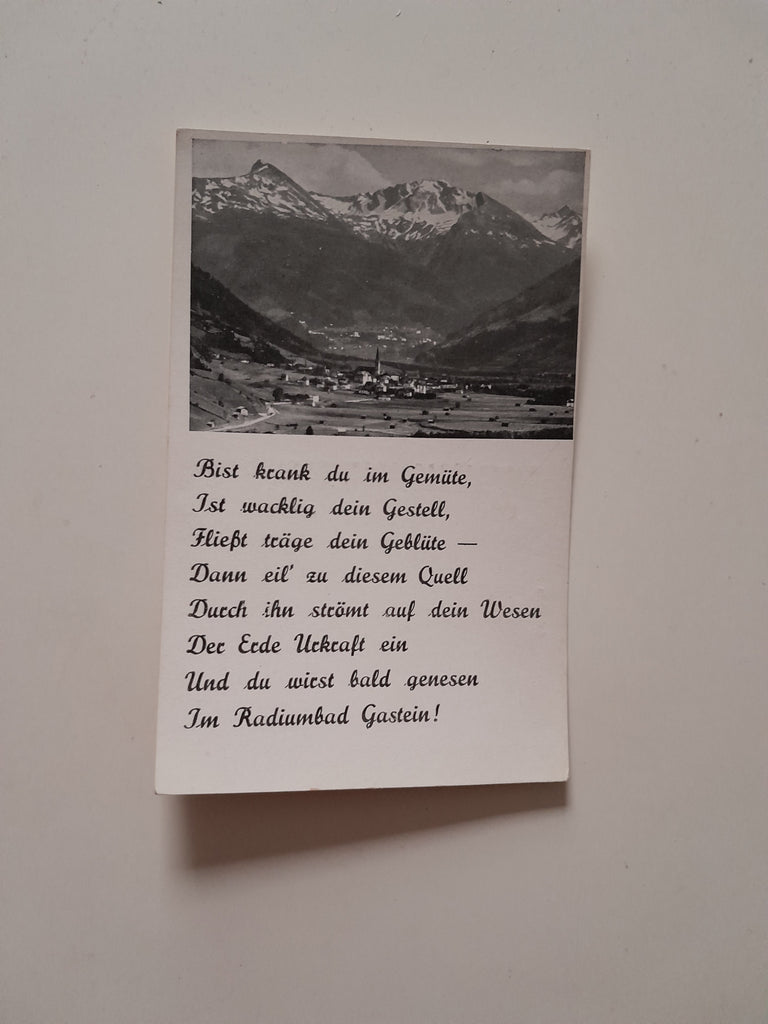 Bist krank du im Gemüte,
Ist wacklig dein Gestell,
Fließt träge dein Geblüte —
Dann eil' zu diesem Quell
Durch ihn strömt auf dein Wesen
Der Erde Urkraft ein
Und du wirst bald genesen
Im Radiumbad Gastein!